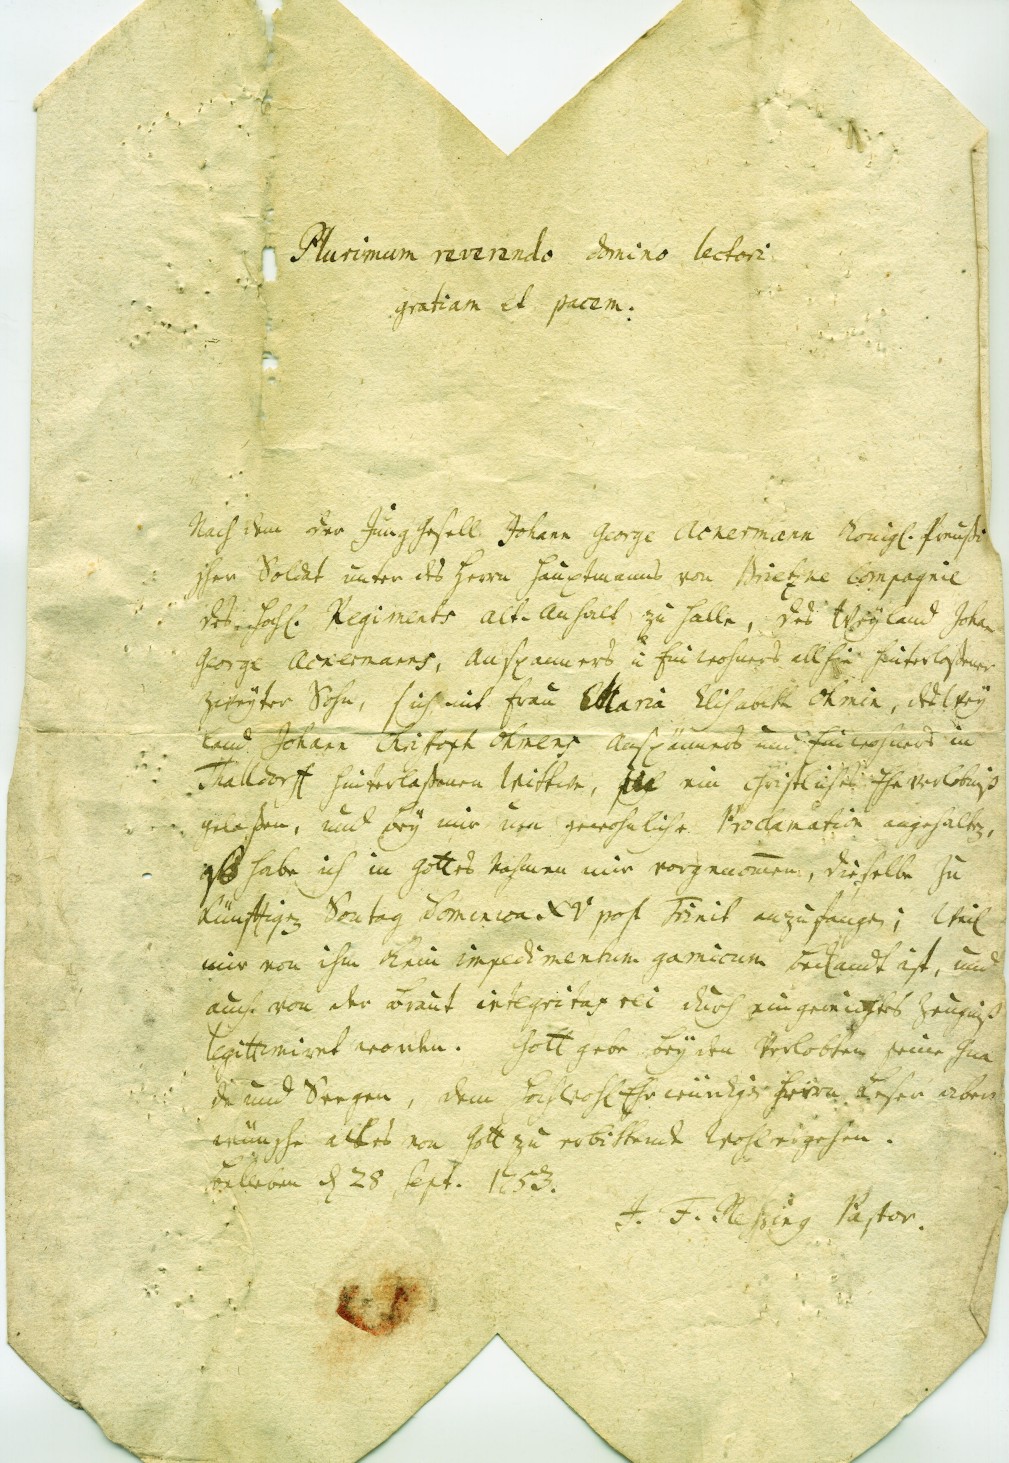 Plurimum reverendo domino lectori
gratiam et pacem.
Nach dem der Jung Gesell Johann George Ackermann Königl. Preußi
scher Soldat unter des Herrn Hauptmanns von Compagnie
des Hochl. Regiments alt-Anhalt zu Halle, des Weyland Johan
George Ackermanns, Anspanners u Einwohners allhie hinterlaßener
zweyter Sohn, sich mit Frau Maria Elisabeth Ohmin, des Wey
land Johann Christoph Ohmens Anspänners und Einwohners in
Thalldorff hinterlaßenen Wittwe, in ein christliches Eheverlöbniß
gelaßen, und bey mir um gewöhnliche Proclamation angehalten,
so habe ich in Gottes Nahmen mir vorgenommen, dieselbe zu
künfftigen Sontag Dominica XV post Trinit anzufangen; Weil
mir von ihm kein impedimentum gamicum bekandt ist, und
auch von der Braut integritas rei durch eingereichtes Zeugniß
legittimiret worden. Gott gebe beyden Verlobten seine Gna
de und Seegen, dem HochWohlEhrwürdigen Herrn Leser aber
wünsche alles von Gott zu erbittende Wohlergehen.
Belleben d 28 Sept. 1753.
J. F. Pleßing Pastor.